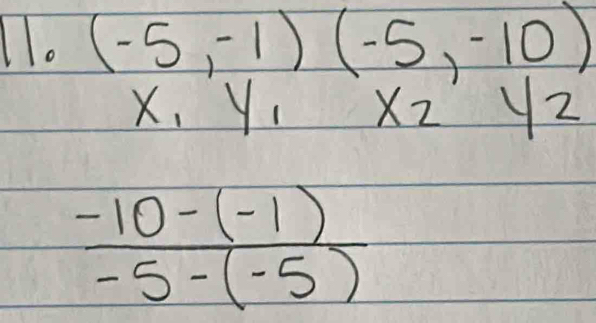 11. (-5,-1) (-5,-10)
x₁ y₁ x₂ y₂
-10-(-1)
-5-(-5)